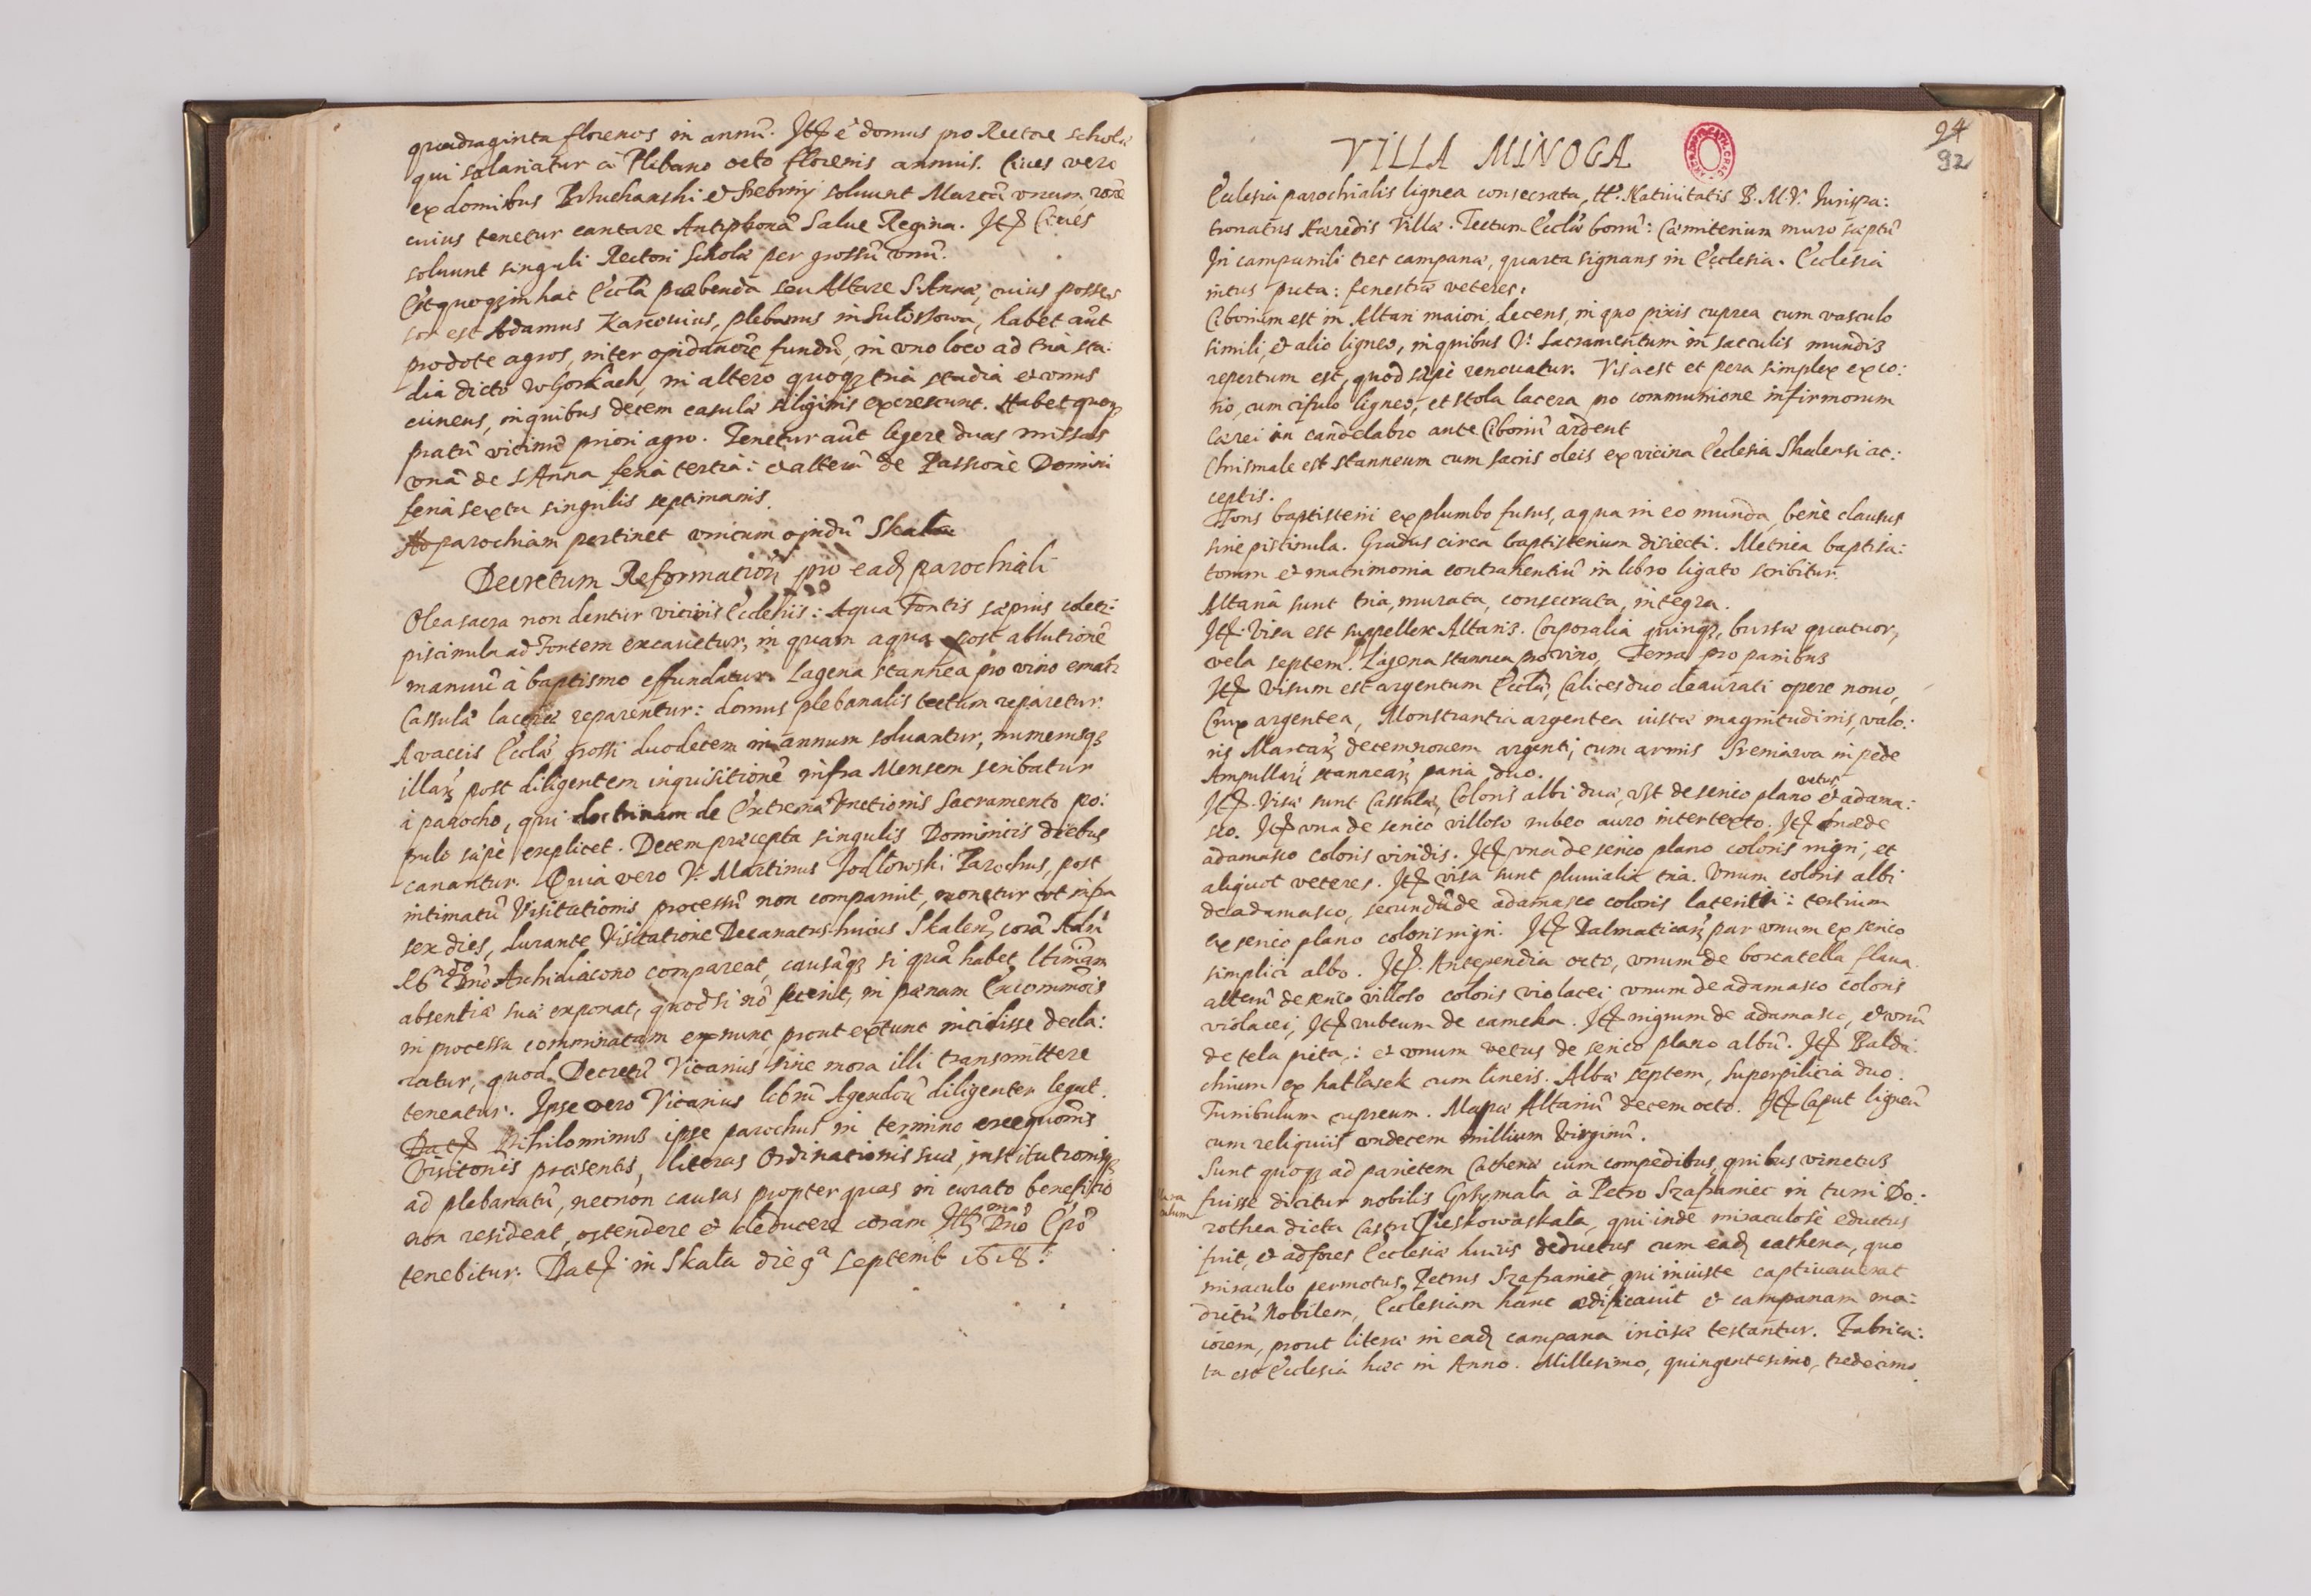 quadraginta florenos in annũ. Itẽ ẽ domus pro Rectore scholæ
qui salariatur à Plebano octo florenis annuis. Ciues vero
ex domibus et Srebrny soluunt Marcã vnum, rõne
cuius tenetur cantare Antiphonã Salue Regina. Itẽ Ciues
soluunt singuli Rectori Scholæ per grossũ vnũ.
Est quoqꝫ in hac Eccla præbenda seu Altare S. Annæ, cuius posses
sor est Adamus Karcouius, plebanus in Sulossowa, habet aũt
pro dote agros, inter opidanorũ fundũ, in vno loco ad tria sta:
dia dicto w Gorkach, in altero quoqꝫ tria stadia et vnus
cuneus, in quibus decem casulæ siliginis excrescunt. Habet quoqꝫ
pratũ vicinũ priori agro. Tenetur aũt legere duas missas
vnã de S. Anna feria tertia: et alterã de Passione Domini
feria sexta singulis septimanis.
Ad parochiam pertinet vnicum opidũ Skala
Decretum Reformationis pro eadẽ parochiali
Olea sacra non dentur vicinis Ecclesiis: Aqua Fontis sæpius
piscinula ad Fontem excauetur, in quam aqua post ablutionẽ
manuũ à baptismo effundatur. Lagena stannea pro vino ematr
Cassulæ laceræ reparentur: domus plebanalis tectum reparetur.
A vaccis Ecclæ grossi duodecem in annum soluantur, numerusqꝫ
illarꝫ post diligentem inquisitionẽ infra Mensem scribatur
à parocho, qui doctrinam de Extremæ Vnctionis Sacramento po:
pulo sæpè explicet. Decem præcepta singulis Dominicis diebus
canantur. Quia vero V. Martinus Jodlowski Parochus, post
intimatũ Visitationis processũ non comparuit, monetur vt infra
sex dies, durante Visitatione Decanatus huius Skalenꝫ corã Adm̃
Rndo Dno Archidiacono compareat, causãqꝫ si quã habet ltimam
absentiæ suæ exponat, quod si nõ fecerit, in pænam Excommõis
in processu comminatam exnunc, prout extunc incidisse decla:
ratur, quod Decretũ Vicarius sine mora illi transmittere
teneatur. Ipse vero Vicarius librũ Agendorũ diligenter legat.
Datẽ Nihilominus ipse parochus in termino
Visitonis præsentis, literas Ordinationis suæ, institutionisqꝫ
ad plebanatũ, necnon causas propter quas in curato beneficio
non resideat, ostendere et deducere coram Illmo Dnõ Epõ
tenebitur. Datẽ in Skala die 9a Septemb 1618.
94
92
VILLA MINOGA
Ecclesia parochialis lignea consecrata, tt. Natiuitatis B. M. V. Iurispa:
tronatus Hæredis Villæ. Tectum Ecclæ bonũ: Cæmiterium muro sæptũ
In campanili tres campanæ, quarta signans in Ecclesia. Ecclesia
intus picta: fenestræ veteres.
Ciborium est in Altari maiori, decens, in quo pixis cuprea cum vasculo
simili, et alio ligneo, in quibus V. Sacramentum in sacculis mundis
repertum est, quod sæpè renouatur. Visa est et pera simplex ex co:
rio, cum cifulo ligneo, et stola lacera pro communione infirmorum
Cærei in candelabro ante Ciboriũ ardent
Chrismale est stanneum cum sacris oleis ex vicina Ecclesia Skalensi ac:
ceptis.
Fons baptisterii ex plumbo fusus, aqua in eo munda, benè clausus
sine piscinula. Gradus circa baptisterium disiecti. Metrica baptisa:
torum et matrimonia contrahentiũ in libro ligato scribitur.
Altaria sunt tria, murata, consecrata, integra.
Itẽ. Visa est suppellex Altaris. Corporalia quinqꝫ, bursæ quatuor,
vela septem. Lagena stannea pro vino, Ferra pro panibus
Itẽ visum est argentum Ecclæ, Calices duo deaurati opere nouo,
Crux argentea, Monstrantia argentea iustæ magnitudinis, valo:
ris Marcarꝫ decemnouem argenti, cum armis Sreniawa in pede
Ampullarꝫ stannearꝫ paria duo.
vetus
Itẽ. Visæ sunt Cassulæ, Coloris albi duæ, vst de serico plano et adama:
sco. Itẽ vna de serico villoso rubeo auro intertexto. Itẽ vna de
adamasco coloris viridis. Itẽ vna de serico plano coloris nigri, et
aliquot veteres. Itẽ visa sunt pluuialia tria. Vnum coloris albi
de adamasco, secundũ de adamasco coloris lateritii: tertium
ex serico plano coloris nigri. Itẽ Dalmaticarꝫ par vnum ex serico
simplici albo. Itẽ. Antependia octo, vnum de borcatella flaua.
alterũ de serico villoso coloris violacei, vnum de adamasco coloris
violacei, Itẽ rubeum de camcha. Itẽ nigrum de adamasco, et vnũ
de tela picta: et vnum vetus de serico plano albũ. Itẽ Balda:
chinum ex hatłasek cum lineis. Albæ septem, Superpilicia duo.
Turibulum cupreum. Mapæ Altariũ decem octo. Itẽ Caput ligneũ
cum reliquiis vndecem millium Virginũ.
Sunt quoqꝫ ad parietem Cathenæ cum compedibus, quibus vinctus
fuisse dicitur nobilis Grzymala à Petro Szafraniec in turri Do:
rothea dicta Castri Pieskowaskala, qui inde miraculosè eductus
fuit, et ad fores Ecclesiæ huius deductus cum eadẽ cathena, quo
miraculo permotus, Petrus Szafraniec, qui iniuste captiuauerat
dictũ Nobilem, Ecclesiam hanc ædificauit et campanam ma:
iorem, prout literæ in eadẽ campana incisæ testantur. Fabrica:
ta est Ecclesia hæc in Anno. Millesimo, quingentesimo, tredecimo.